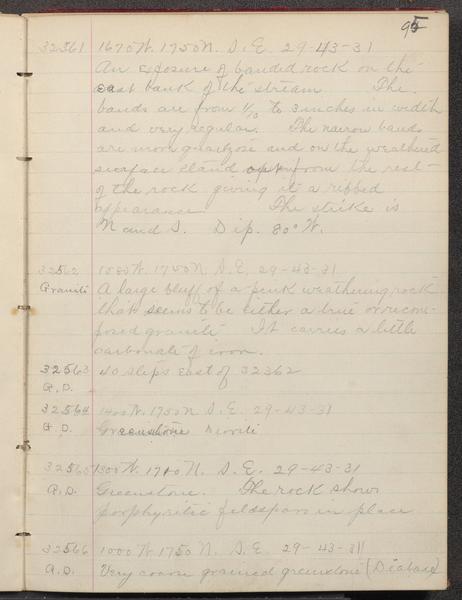 95
32561 1670 W. 1750 N. S. E. 29-43-31
An exposure of banded rock on the
east bank of the stream The
bands are from 1/10 to 3 inches in width
and very regular. The narrow bands
are more quartzose and on the weathered
surface stand out from the rest
of the rock giving it a ribbed
appearance The strike is
N and S. Dip. 80° W.
32562 W. 1750 N. S. E. 29-43-31
Granite A large bluff of a pink weathering rock
that seems to be either a true or recom-
posed granite It carries a little
carbonate of iron.
32563 40 steps east of 32362
G. D.
32564 1400 W. 1750 N S. E. 29-43-31
G. D. Greenstone Diorite
32565 1300 W. 1710 N. S. E. 29-43-31
A. D. Greenstone. The rock shows
porphyritic feldspars in place
32566 1000 W. 1750 N. S. E. 29-43-31
A. D. Very coarse grained greenstone (Diabase)